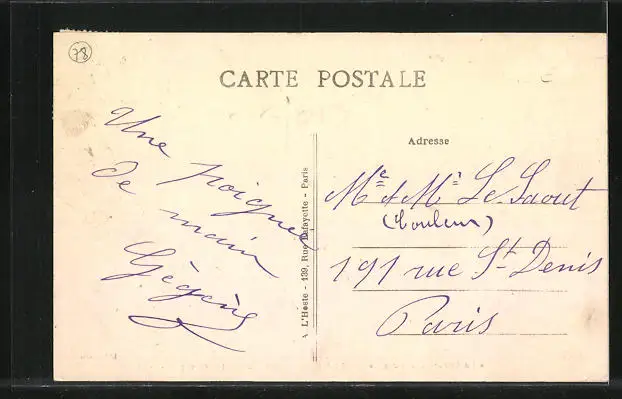 78
CARTE POSTALE
Une poignée
de main
Gégène
A L'Hoste - 139, Rue Lafayette - Paris
Adresse
Me et Mr Le Saout
(Couleur)
191 rue St Denis
Paris